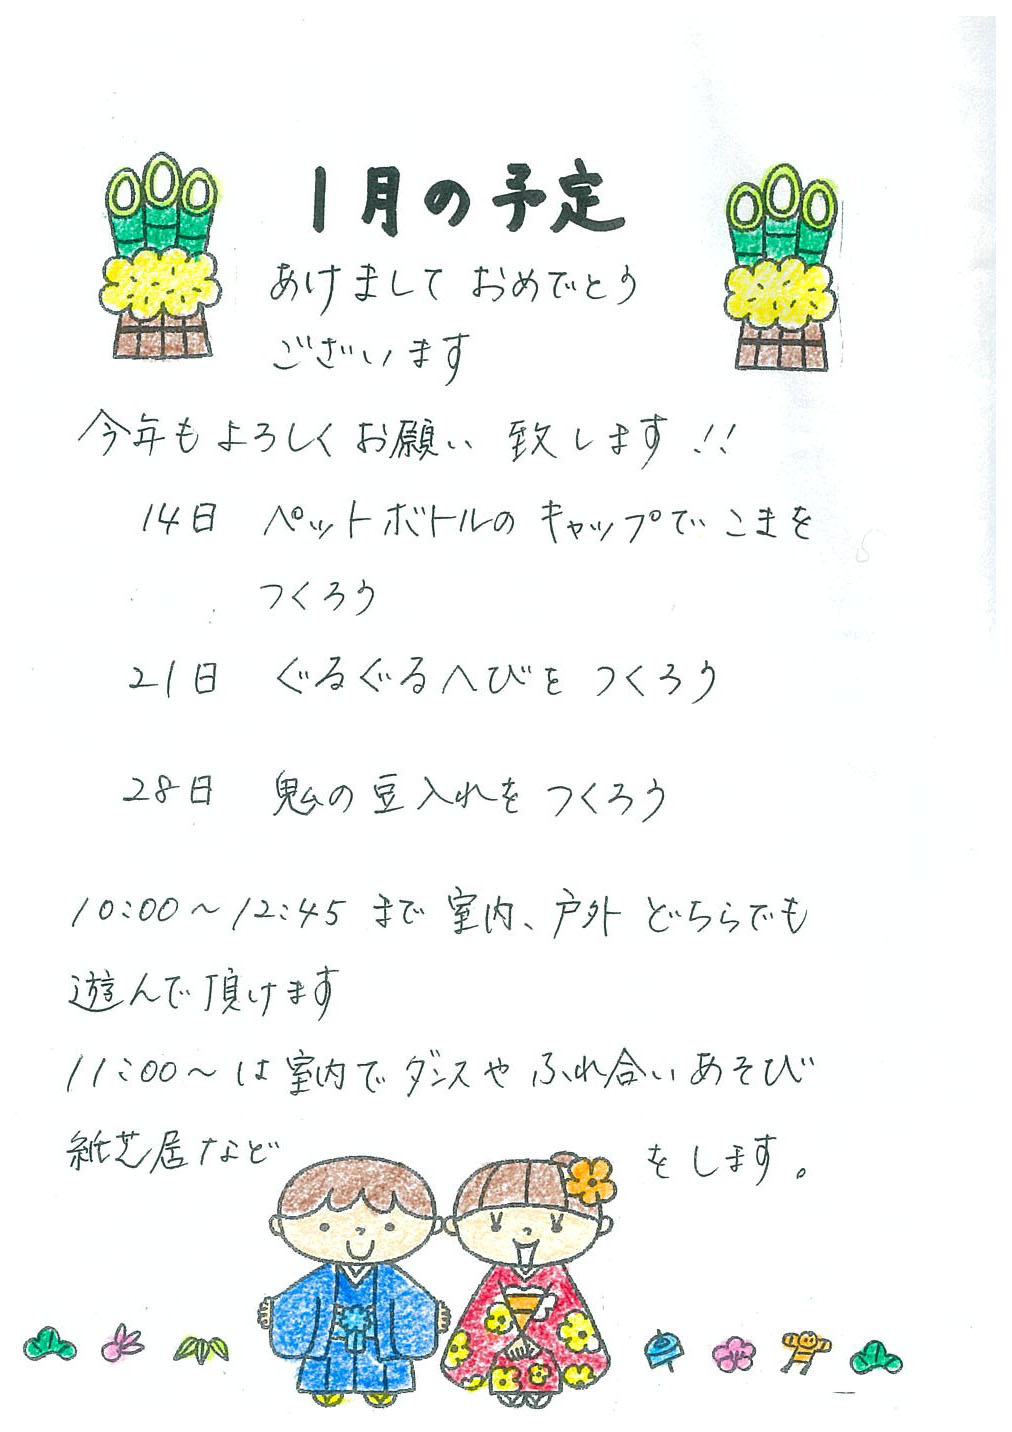 1月の予定
あけまして おめでとう
ございます
今年もよろしくお願い 致します!!
14日 ペットボトルの キャップで こまを
つくろう
21日 ぐるぐるへびを つくろう
28日 鬼の豆入れを つくろう
10:00～12:45 まで 室内、戸外 どちらでも
遊んで頂けます
11:00～は室内で ダンスや ふれ合いあそび
紙芝居など をします。